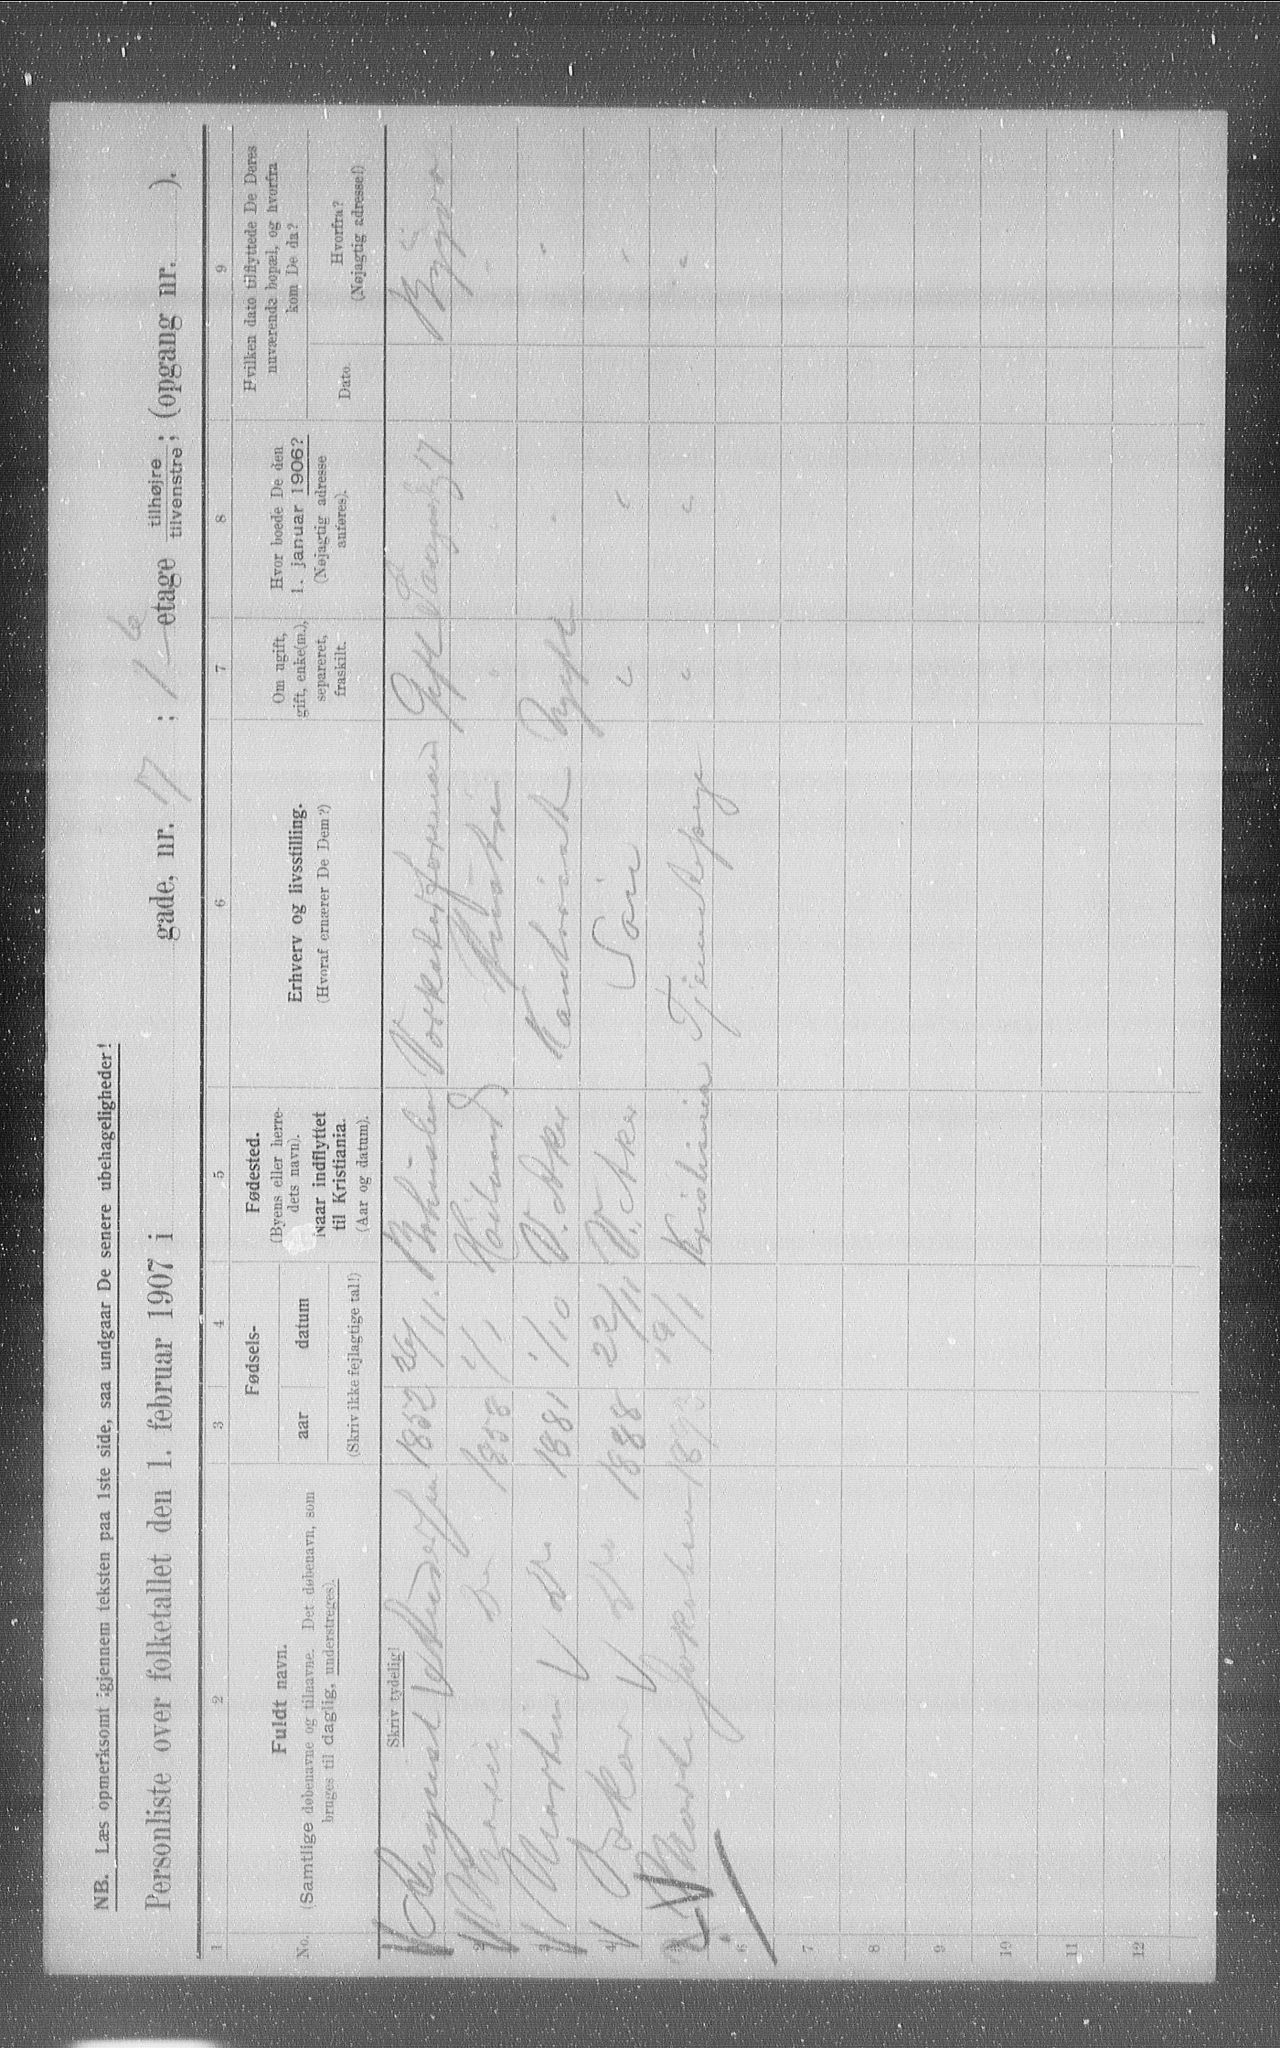 NB. Læs opmerksomt igjennem teksten paa 1ste side, saa undgaar De senere ubehageligheder!
Personliste over folketallet den 1. februar 1907 i gade, nr. 17 ; 1 etage tilhøjre tilvenstre ; (opgang nr. ).
1 2 3 4 5 6 7 8 9
No.
Fuldt navn.
(Samtlige døbenavne og tilnavne. Det døbenavn, som
bruges til daglig, understreges).
Fødsels-
aar datum
(Skriv ikke fejlagtige tal!)
Fødested.
(Byens eller herre-
dets navn).
Naar indflyttet
til Kristiania.
(Aar og datum).
Erhverv og livsstilling.
(Hvoraf ernærer De Dem?)
Om ugift,
gift, enke(m.),
separeret,
fraskilt.
Hvor boede De den
1. januar 1906?
(Nøjagtig adresse
anføres).
Hvilken dato tilflyttede De Deres
nuværende bopæl, og hvorfra
kom De da?
Dato.
Hvorfra?
(Nøjagtig adresse!)
Skriv tydelig!
Andersen 1852 26/11 Gift 17
2 Do 1858 1/1 "
3 Martin Do 1881 1/10 V. Aker Kontorist Ugift "
4 Oskar Do 1888 22/11 V. Aker " "
5 Jakobsen 1893 19/1 Kristiania Tjenestepige " " "
6
7
8
9
10
11
12